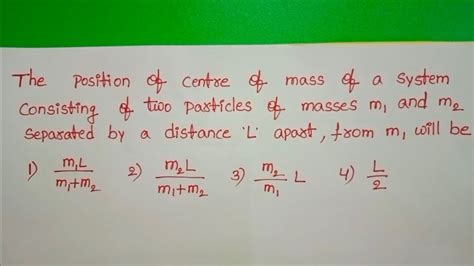 The Position of centre of mass of a system
consisting of two particles of masses m₁ and m₂
separated by a distance 'L' apart, from m₁ will be
1) m₁L/(m₁+m₂) 2) m₂L/(m₁+m₂) 3) m₂/m₁ L 4) L/2